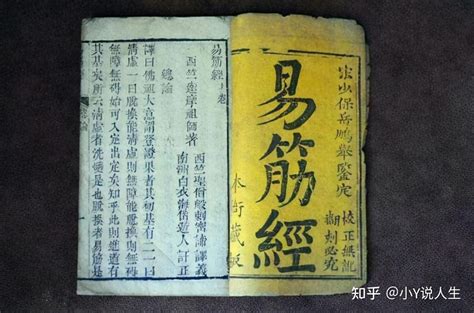 宋少保岳鵬舉鑒定
校正無訛
翻刻必究
易筋經
本衙藏板
易筋經上卷
西竺達摩祖師著
西竺聖僧般剌密諦譯義
南洲白衣海岱遊人訂正
總論
譯曰佛祖大意謂登證果者其初基有二一曰
清虛一曰脫換能清虛則無障能脫換則無碍
無障無碍始可入定出定矣知乎此則進道有
其基矣所云清虛者洗髓是也脫換者易筋是
知乎 @小Y说人生